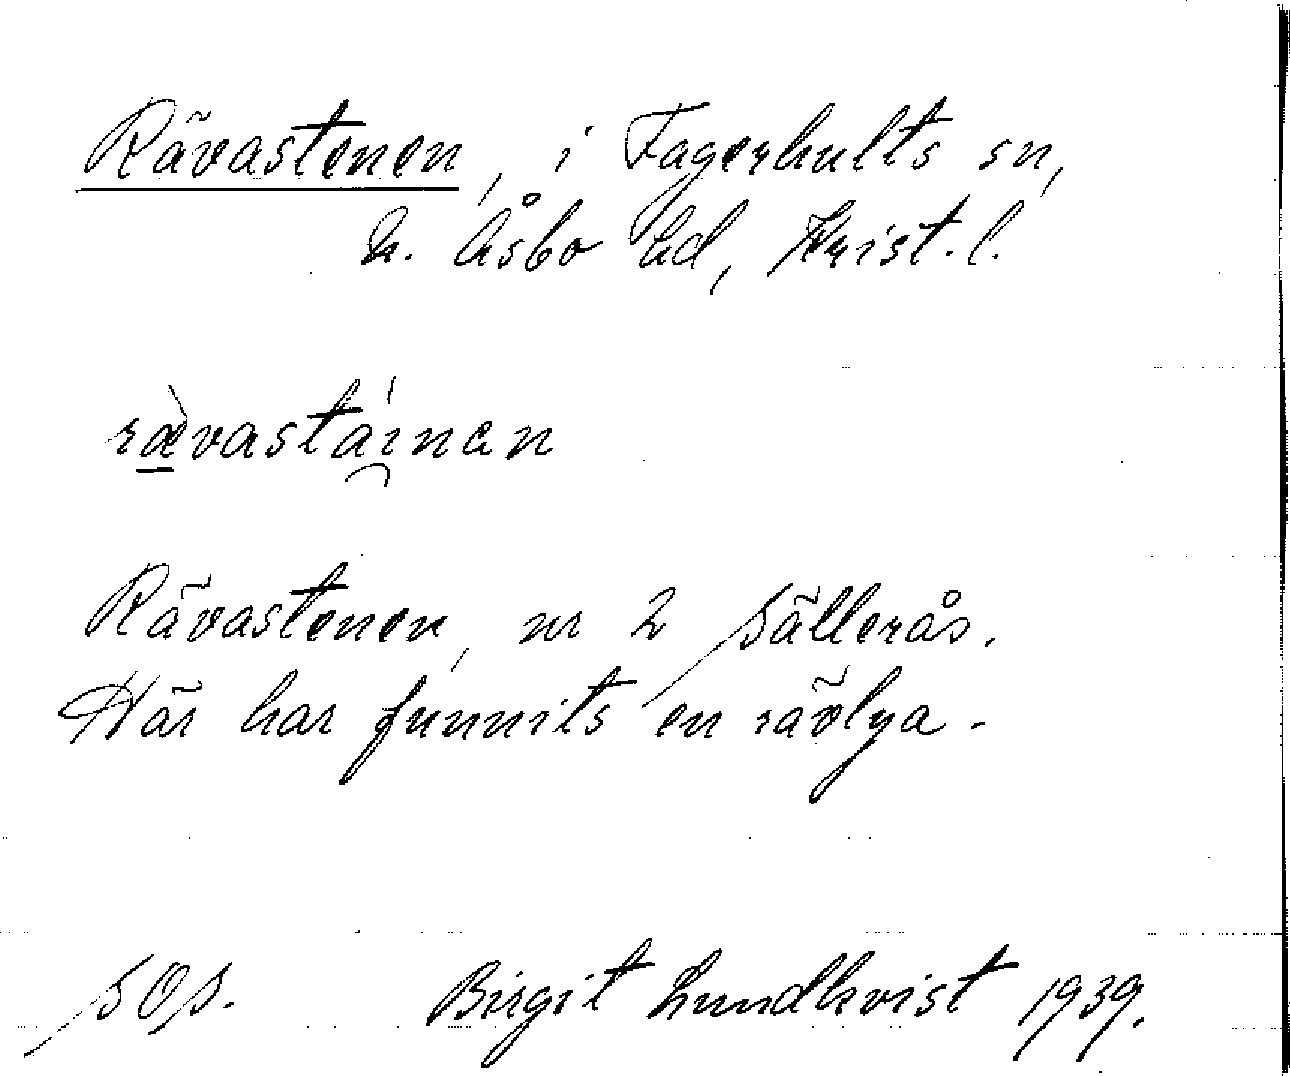 Rävastenen, i Fagerhults sn,
N. Åsbo hd, Krist. l.
rævastáinan
Rävastenen, nr 2 Sällerås.
Här har funnits en rävlya.
SOS. Birgit Lundkvist 1939.